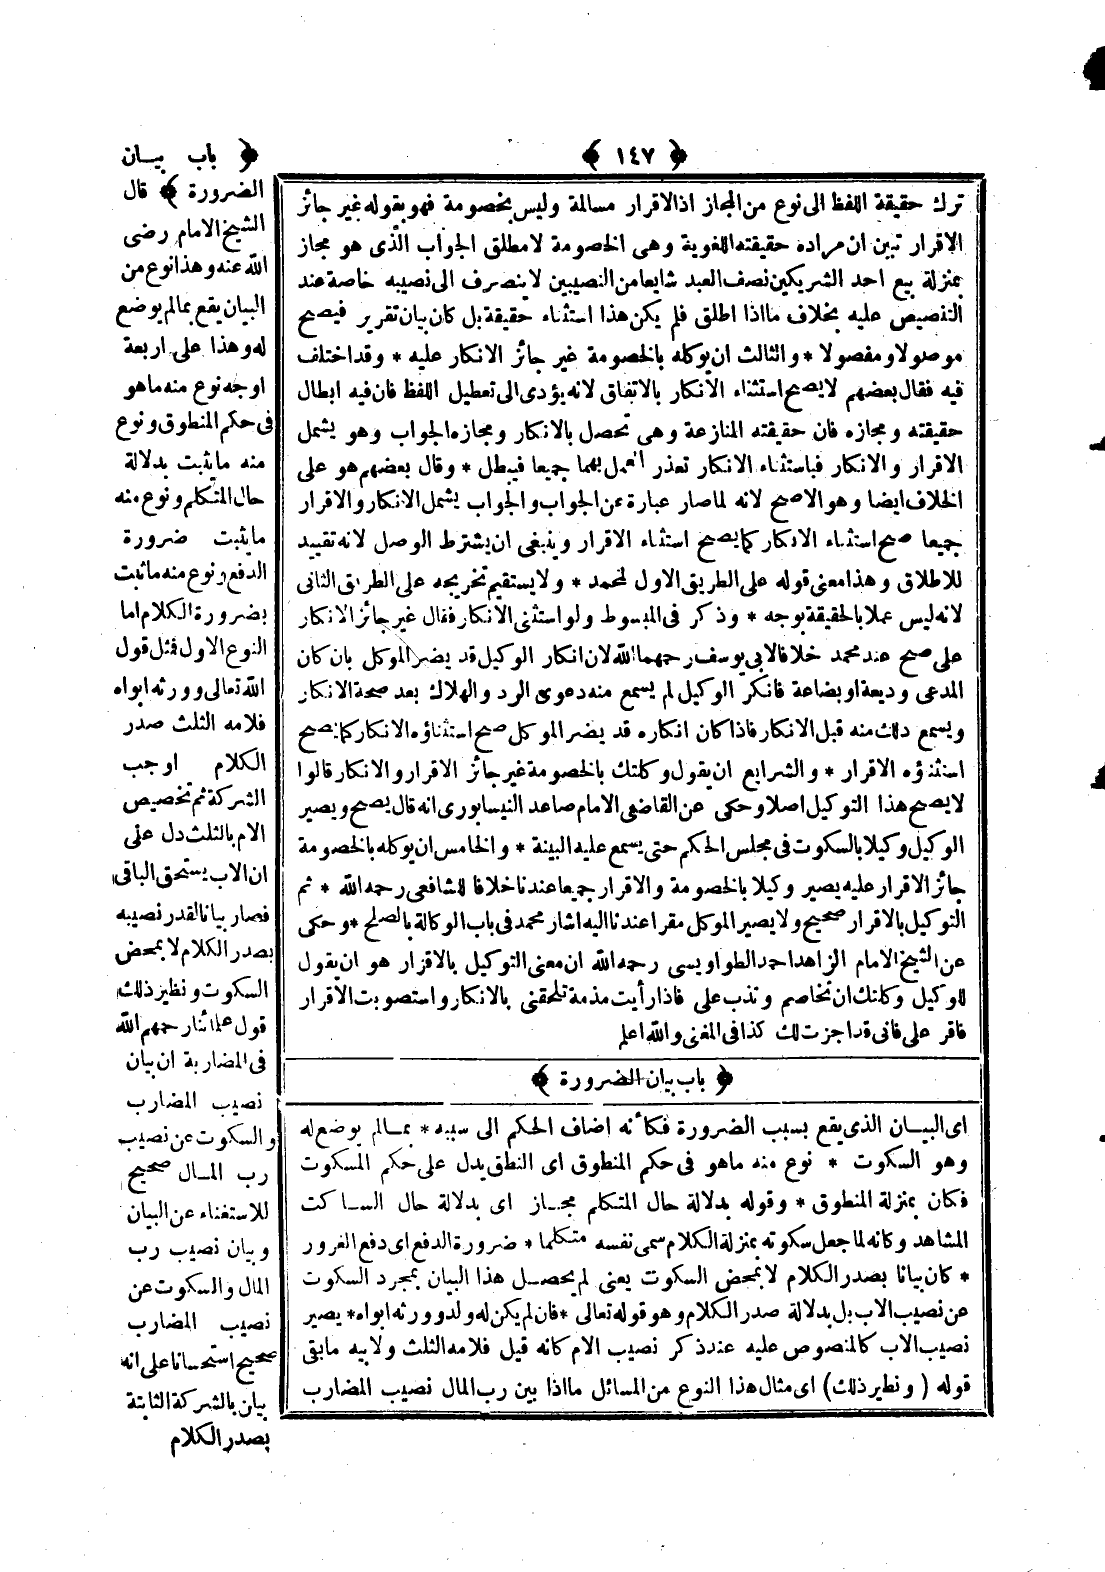 ﴿ ١٤٧ ﴾
ترك حقيقة اللفظ الى نوع من المجاز اذ الاقرار مسالمة وليس بخصومة فهو بقوله غير جائز
الاقرار تبين ان مراده حقيقته اللغوية وهى الخصومة لا مطلق الجواب الذى هو مجاز
بمنزلة بيع احد الشريكين نصف العبد شايعا من النصيبين لا ينصرف الى نصيبه خاصة عند
التنصيص عليه بخلاف ما اذا اطلق فلم يكن هذا استثناء حقيقة بل كان بيان تقرير فيصح
موصولا ومفصولا * والثالث ان يوكله بالخصومة غير جائز الانكار عليه * وقد اختلف
فيه فقال بعضهم لا يصح استثناء الانكار بالاتفاق لانه يؤدى الى تعطيل اللفظ فان فيه ابطال
حقيقته ومجازه فان حقيقته المنازعة وهى تحصل بالانكار ومجازه الجواب وهو يشمل
الاقرار والانكار فباستثناء الانكار تعذر العمل بهما جميعا فيبطل * وقال بعضهم هو على
الخلاف ايضا وهو الاصح لانه لما صار عبارة عن الجواب والجواب يشمل الانكار والاقرار
جميعا صح استثناء الانكار كما يصح استثناء الاقرار وينبغى ان يشترط الوصل لانه تقييد
للاطلاق وهذا معنى قوله على الطريق الاول لمحمد * ولا يستقيم تخريجه على الطريق الثانى
لانه ليس عملا بالحقيقة بوجه * وذكر فى المبسوط ولو استثنى الانكار فقال غير جائز الانكار
على صح عند محمد خلافا لابى يوسف رحمهما الله لان انكار الوكيل قد يضر الموكل بان كان
المدعى وديعة او بضاعة فانكر الوكيل لم يسمع منه دعوى الرد والهلاك بعد صحة الانكار
ويسمع ذلك منه قبل الانكار فاذا كان انكاره قد يضر الموكل صح استثناؤه الانكار كما يصح
استثناؤه الاقرار * والشرابع ان يقول وكلتك بالخصومة غير جائز الاقرار والانكار قالوا
لا يصح هذا التوكيل اصلا وحكى عن القاضى الامام صاعد النيسابورى انه قال يصح ويصير
الوكيل وكيلا بالسكوت فى مجلس الحكم حتى يسمع عليه البينة * والخامس ان يوكله بالخصومة
جائز الاقرار عليه يصير وكيلا بالخصومة والاقرار جميعا عندنا خلافا للشافعى رحمه الله * ثم
التوكيل بالاقرار صحيح ولا يصير الموكل مقرا عندنا اليه اشار محمد فى باب الوكالة بالصلح * وحكى
عن الشيخ الامام الزاهد احمد الطواويسى رحمه الله ان معنى التوكيل بالاقرار هو ان يقول
للوكيل وكلتك ان تخاصم وتذب على فاذا رأيت مذمة تلحقنى بالانكار واستصوبت الاقرار
فاقر على فانى قد اجزت لك كذا فى المغنى والله اعلم
﴿ باب بيان الضرورة ﴾
اى البيــان الذى يقع بسبب الضرورة فكأنه اضاف الحكم الى سببه * بمــالم يوضع له
وهو السكوت * نوع منه ماهو فى حكم المنطوق اى النطق يدل على حكم المسكوت
فكان بمنزلة المنطوق * وقوله بدلالة حال المتكلم مجــاز اى بدلالة حال الســاكت
المشاهد وكانه لما جعل سكوته بمنزلة الكلام سمى نفسه متكلما * ضرورة الدفع اى دفع الغرور
* كان بيانا بصدر الكلام لا بمحض السكوت يعنى لم يحصــل هذا البيان بمجرد السكوت
عن نصيب الاب بل بدلالة صدر الكلام وهو قوله تعالى * فان لم يكن له ولد وورثه ابواه * يصير
نصيب الاب كالمنصوص عليه عند ذكر نصيب الام كانه قيل فلامه الثلث ولابيه مابقى
قوله ( ونظير ذلك ) اى مثال هذا النوع من المسائل ما اذا بين رب المال نصيب المضارب
﴿ باب بيــان
الضرورة ﴾ قال
الشيخ الامام رضى
الله عنه وهذا نوع من
البيان يقع بمالم يوضع
له وهذا على اربعة
اوجه نوع منه ماهو
فى حكم المنطوق ونوع
منه مايثبت بدلالة
حال المتكلم ونوع منه
مايثبت ضرورة
الدفع ونوع منه ماثبت
بضرورة الكلام اما
النوع الاول فمثل قول
الله تعالى وورثه ابواه
فلامه الثلث صدر
الكلام اوجب
الشركة ثم تخصيص
الام بالثلث دل على
ان الاب يستحق الباقى
فصار بيانا لقدر نصيبه
بصدر الكلام لا بمحض
السكوت ونظير ذلك
قول علمائنا رحمهم الله
فى المضاربة ان بيان
نصيب المضارب
والسكوت عن نصيب
رب المــال صحيح
للاستغناء عن البيان
وبيان نصيب رب
المال والسكوت عن
نصيب المضارب
صحيح استحسانا على انه
بيان بالشركة الثابتة
بصدر الكلام